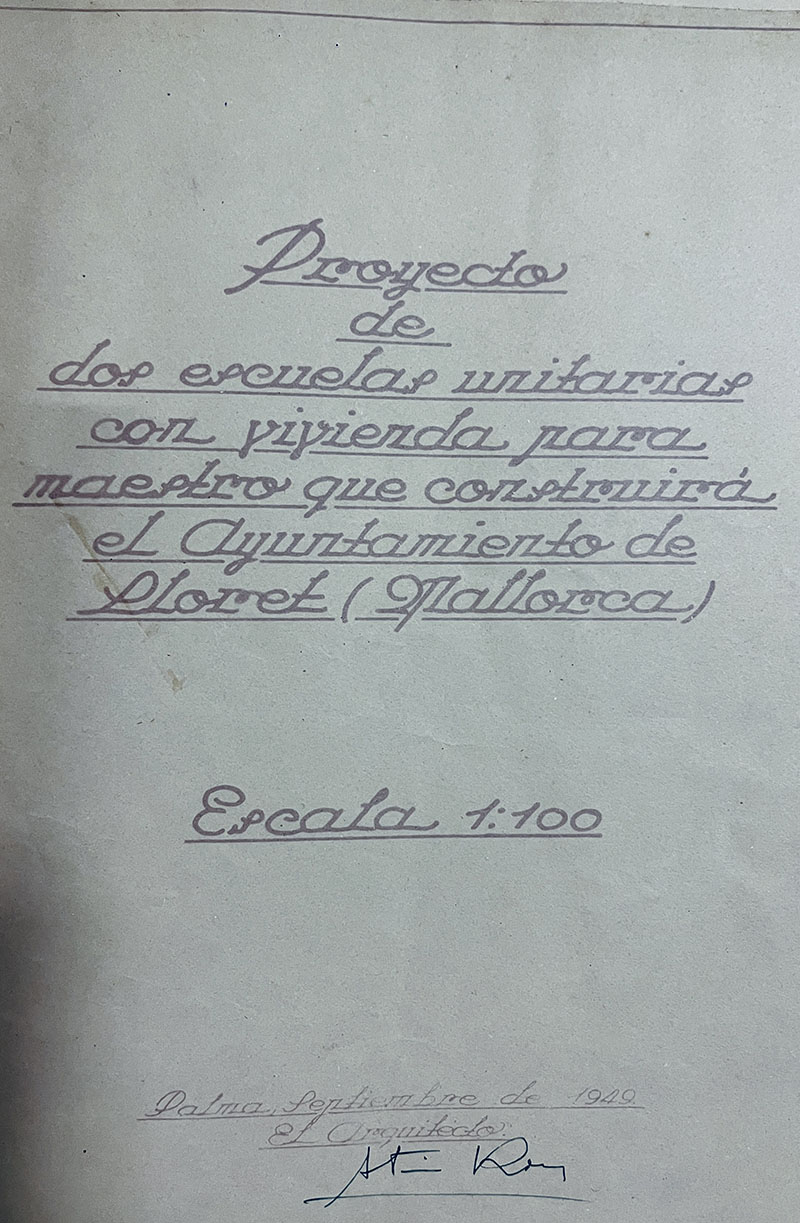 Proyecto
de
dos escuelas unitarias
con vivienda para
maestro que construirá
el Ayuntamiento de
Lloret (Mallorca)
Escala 1:100
Palma, Septiembre de 1949
El Arquitecto: